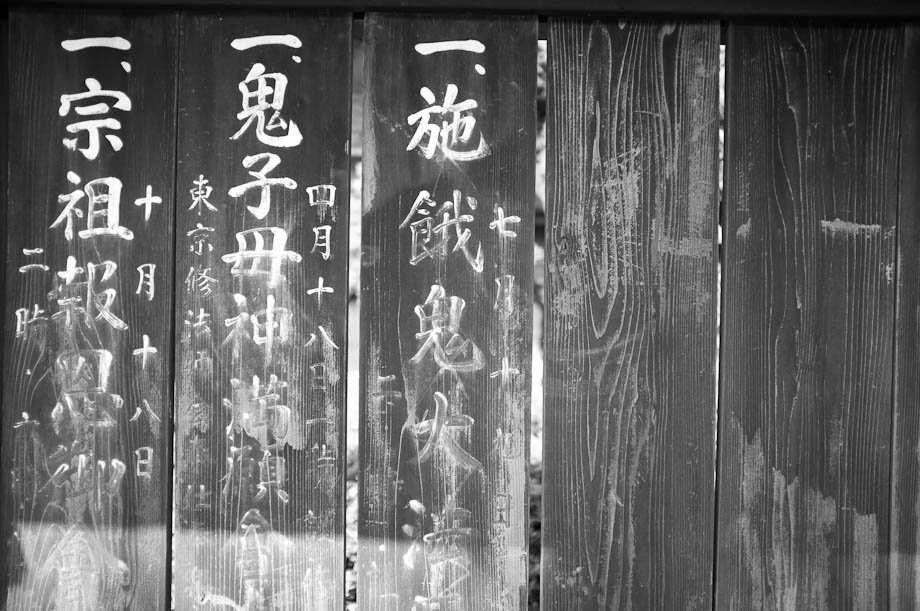 七月十九日
一、施餓鬼大
四月十八日
一、鬼子母神満願会
東京修法師会
十月十八日
一、宗祖報恩御会
二時